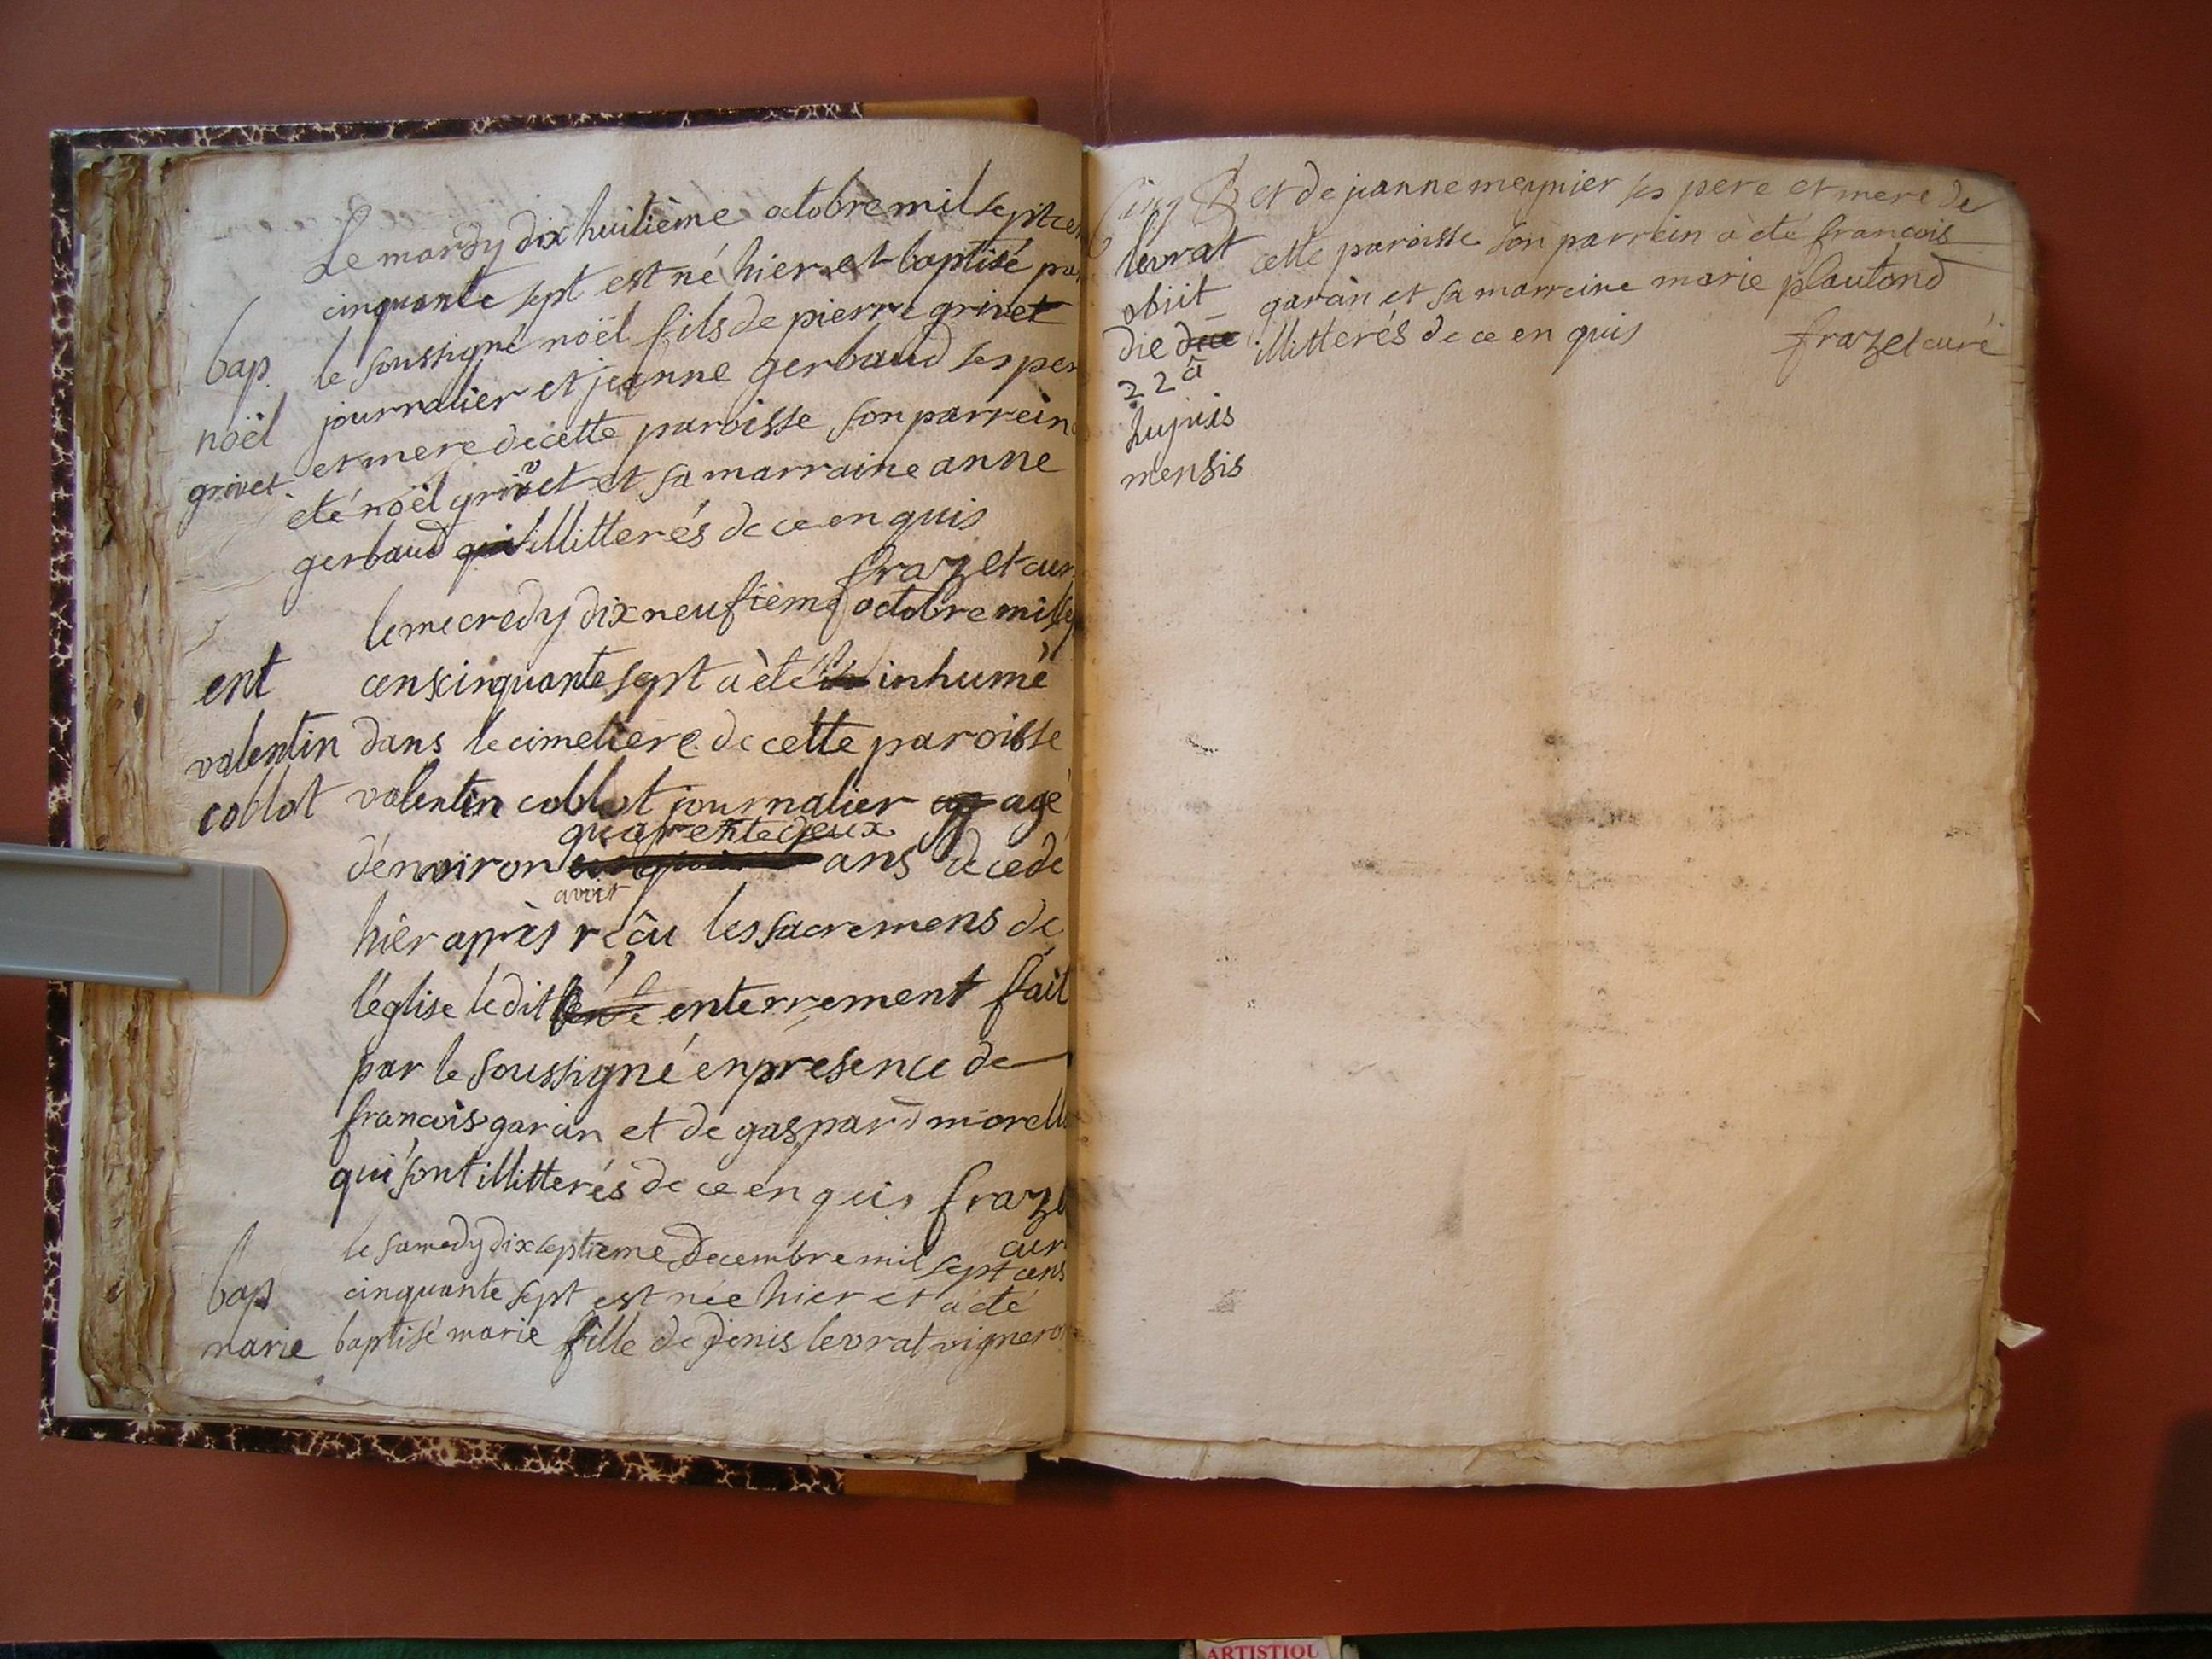 Le mardy dix huitième octobre mil sept cen
cinquante sept est né hier et baptisé pa
bap le soussigné noël fils de pierre grivet
noël journalier et jeanne gerbaud ses per
grivet et mere de cette paroisse son parrein
eté noël grivet et sa marraine anne
gerbaud illitterés de ce enquis
frazet cur
le mecredy dixneufième octobre mil se
ent censcinquante sept a èté inhumé
valentin dans le cimetiere de cette paroisse
coblot valentin coblot journalier agé
quarente deux
dénviron ans decedé
avoir
hier après reçu les sacremens de
l'église ledit enterrement fait
par le soussigné en presence de
francois garan et de gaspard morell
qui sont illitterés de ce enquis fraze
cur
le samedy dix septieme decembre mil sept cens
bap cinquante sept est née hier et a été
marie baptisé marie fille de denis levrat vigneron
et de jeanne meynier ses pere et mere de
levrat cette paroisse son parrein à été francois
obiit garàn et sa marreine marie plautond
die illitterés de ce enquis frazet curé
22 â
hujus
mensis
ARTISTIQU